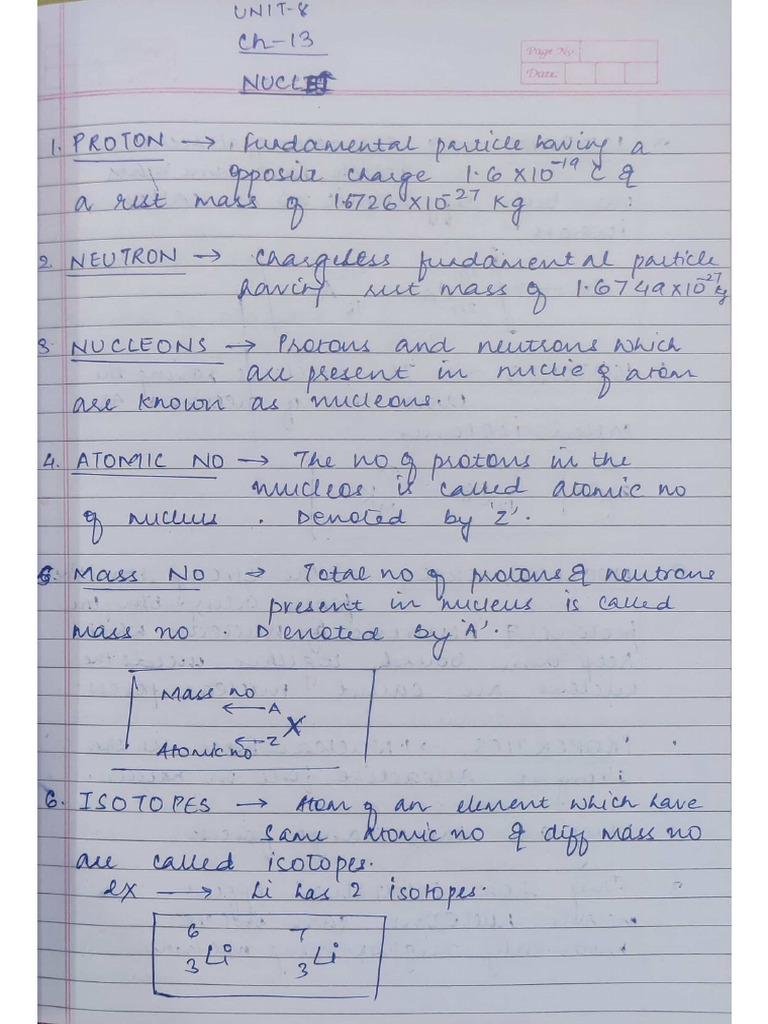 UNIT-8
Ch-13
Page No.
Date
NUCLEI
1. PROTON → Fundamental particle having a
opposite charge 1.6 × 10⁻¹⁹ C &
a rest mass of 1.6726 × 10⁻²⁷ Kg
2. NEUTRON → Chargeless fundamental particle
having rest mass of 1.6749 × 10⁻²⁷ Kg
3. NUCLEONS → Protons and neutrons which
are present in nuclie of atom
are known as nucleons.
4. ATOMIC NO → The no of protons in the
nucleos is called atomic no
of nucleus. Denoted by 'Z'.
5. MASS NO → Total no of protons & neutrons
present in nucleus is called
mass no. Denoted by 'A'.
Mass no
← A
X
Atomic no ← Z
6. ISOTOPES → Atom of an element which have
same atomic no & diff mass no
are called isotopes.
ex → Li has 2 isotopes.
6 7
Li Li
3 3